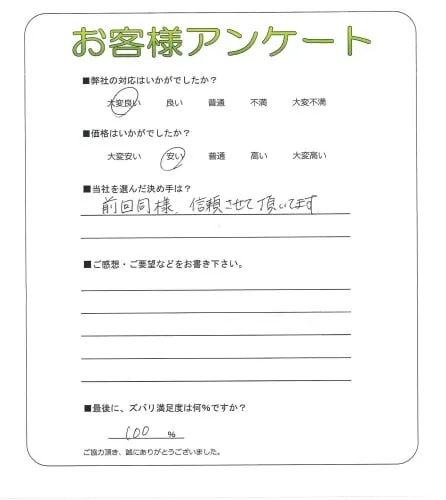 お客様アンケート
■弊社の対応はいかがでしたか？
大変良い 良い 普通 不満 大変不満
■価格はいかがでしたか？
大変安い 安い 普通 高い 大変高い
■当社を選んだ決め手は？
前回同様、信頼させて頂いてます
■ご感想・ご要望などをお書き下さい。
■最後に、ズバリ満足度は何％ですか？
100 ％
ご協力頂き、誠にありがとうございました。